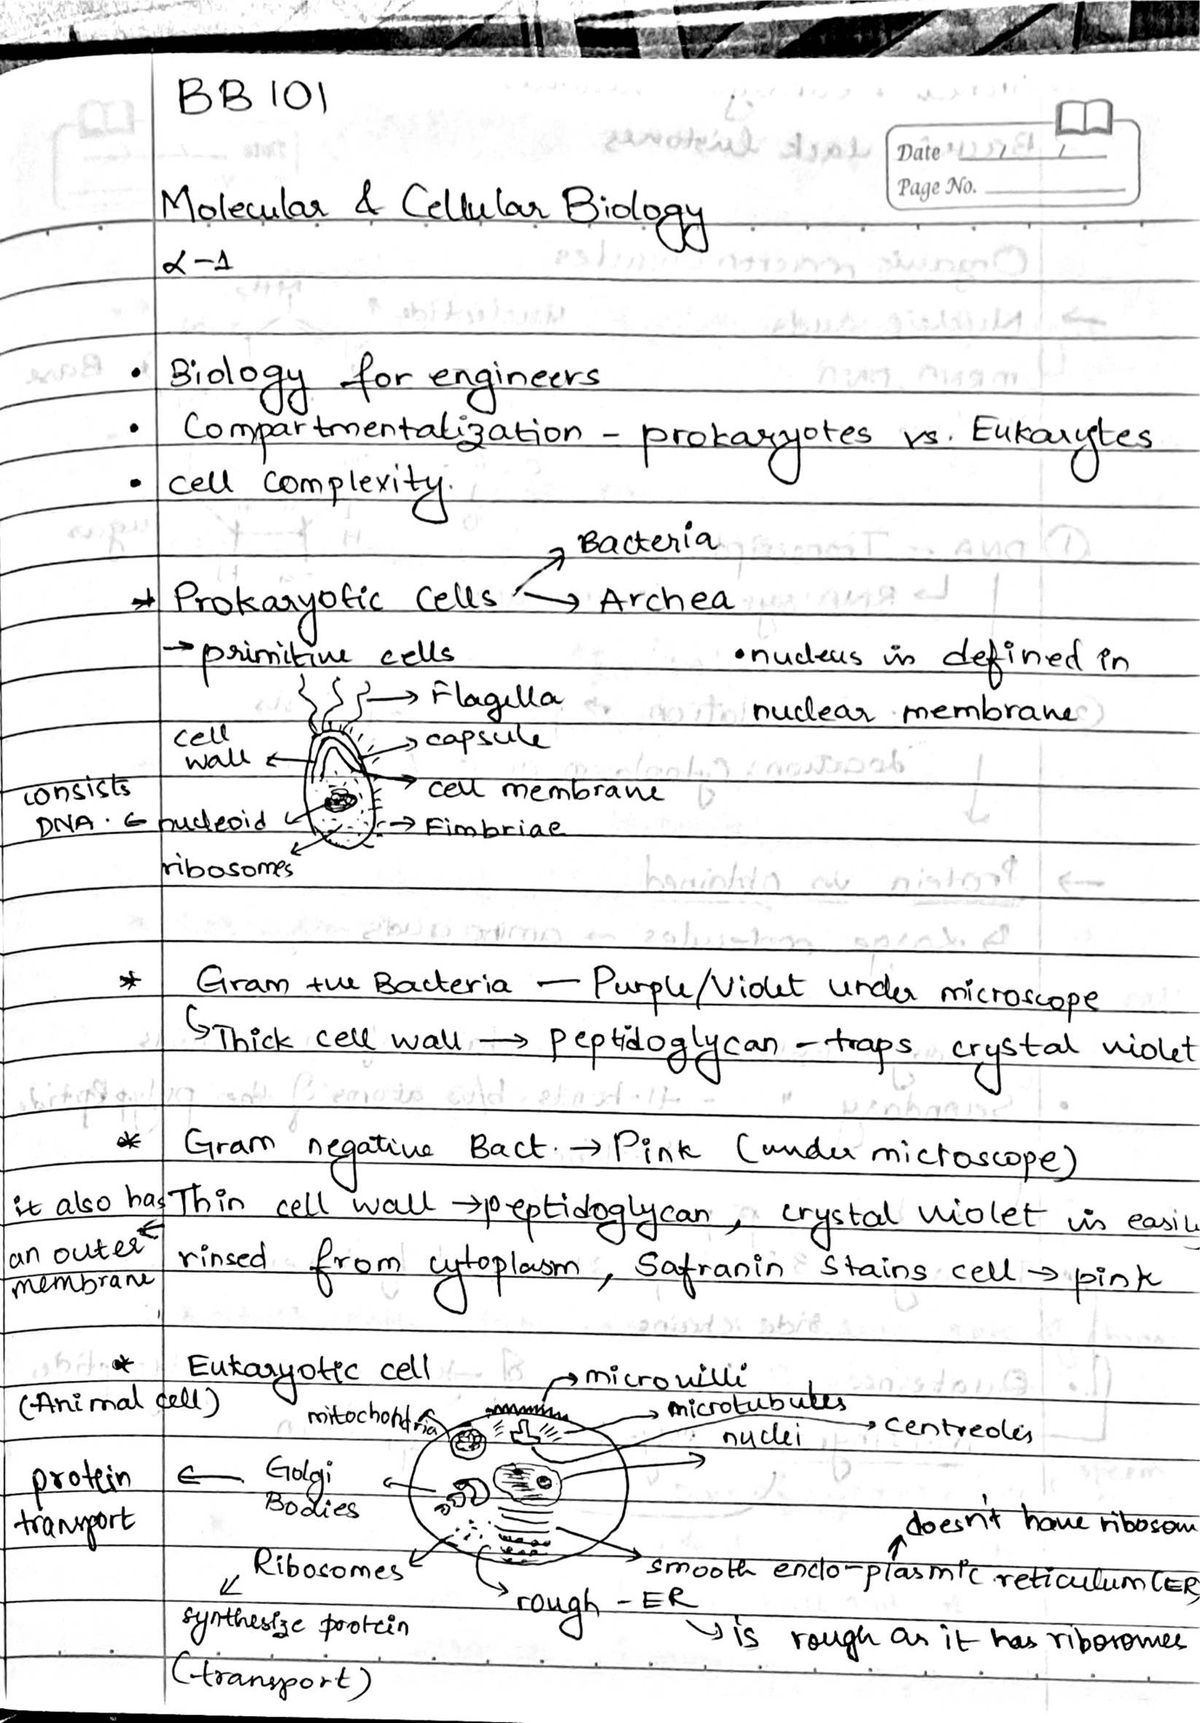 BB 101
Date
Page No.
Molecular & Cellular Biology
L-1
• Biology for engineers
• Compartmentalization - prokaryotes vs. Eukarytes
• cell complexity.
Bacteria
* Prokaryotic cells → Archea
→ primitive cells
• nucleus is defined in
nuclear membrane
→ Flagella
cell
wall
→ capsule
→ cell membrane
consists
DNA. ← nucleoid
→ Fimbriae
ribosomes
* Gram +ve Bacteria — Purple/Violet under microscope
↳ Thick cell wall → peptidoglycan - traps crystal violet
* Gram negative Bact. → Pink (under microscope)
it also has
an outer
membrane
Thin cell wall → peptidoglycan, crystal violet is easily
rinsed from cytoplasm, Safranin stains cell → pink
* Eukaryotic cell
(Animal cell)
→ microvilli
→ microtubules
mitochondria
→ centreoles
nuclei
protein
transport
← Golgi
Bodies
doesn't have ribosom
Ribosomes
smooth endo-plasmic reticulum (ER)
synthesize protein
(transport)
→ rough - ER
↳ is rough as it has ribosomes